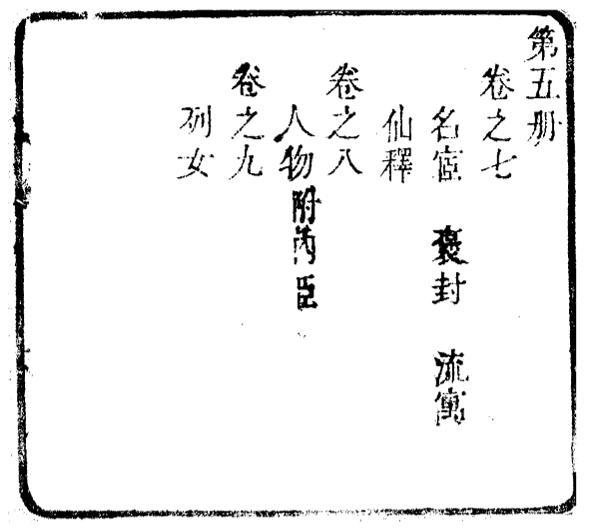 第五册
卷之七
名宦 褒封 流寓
仙釋
卷之八
人物附内臣
卷之九
列女